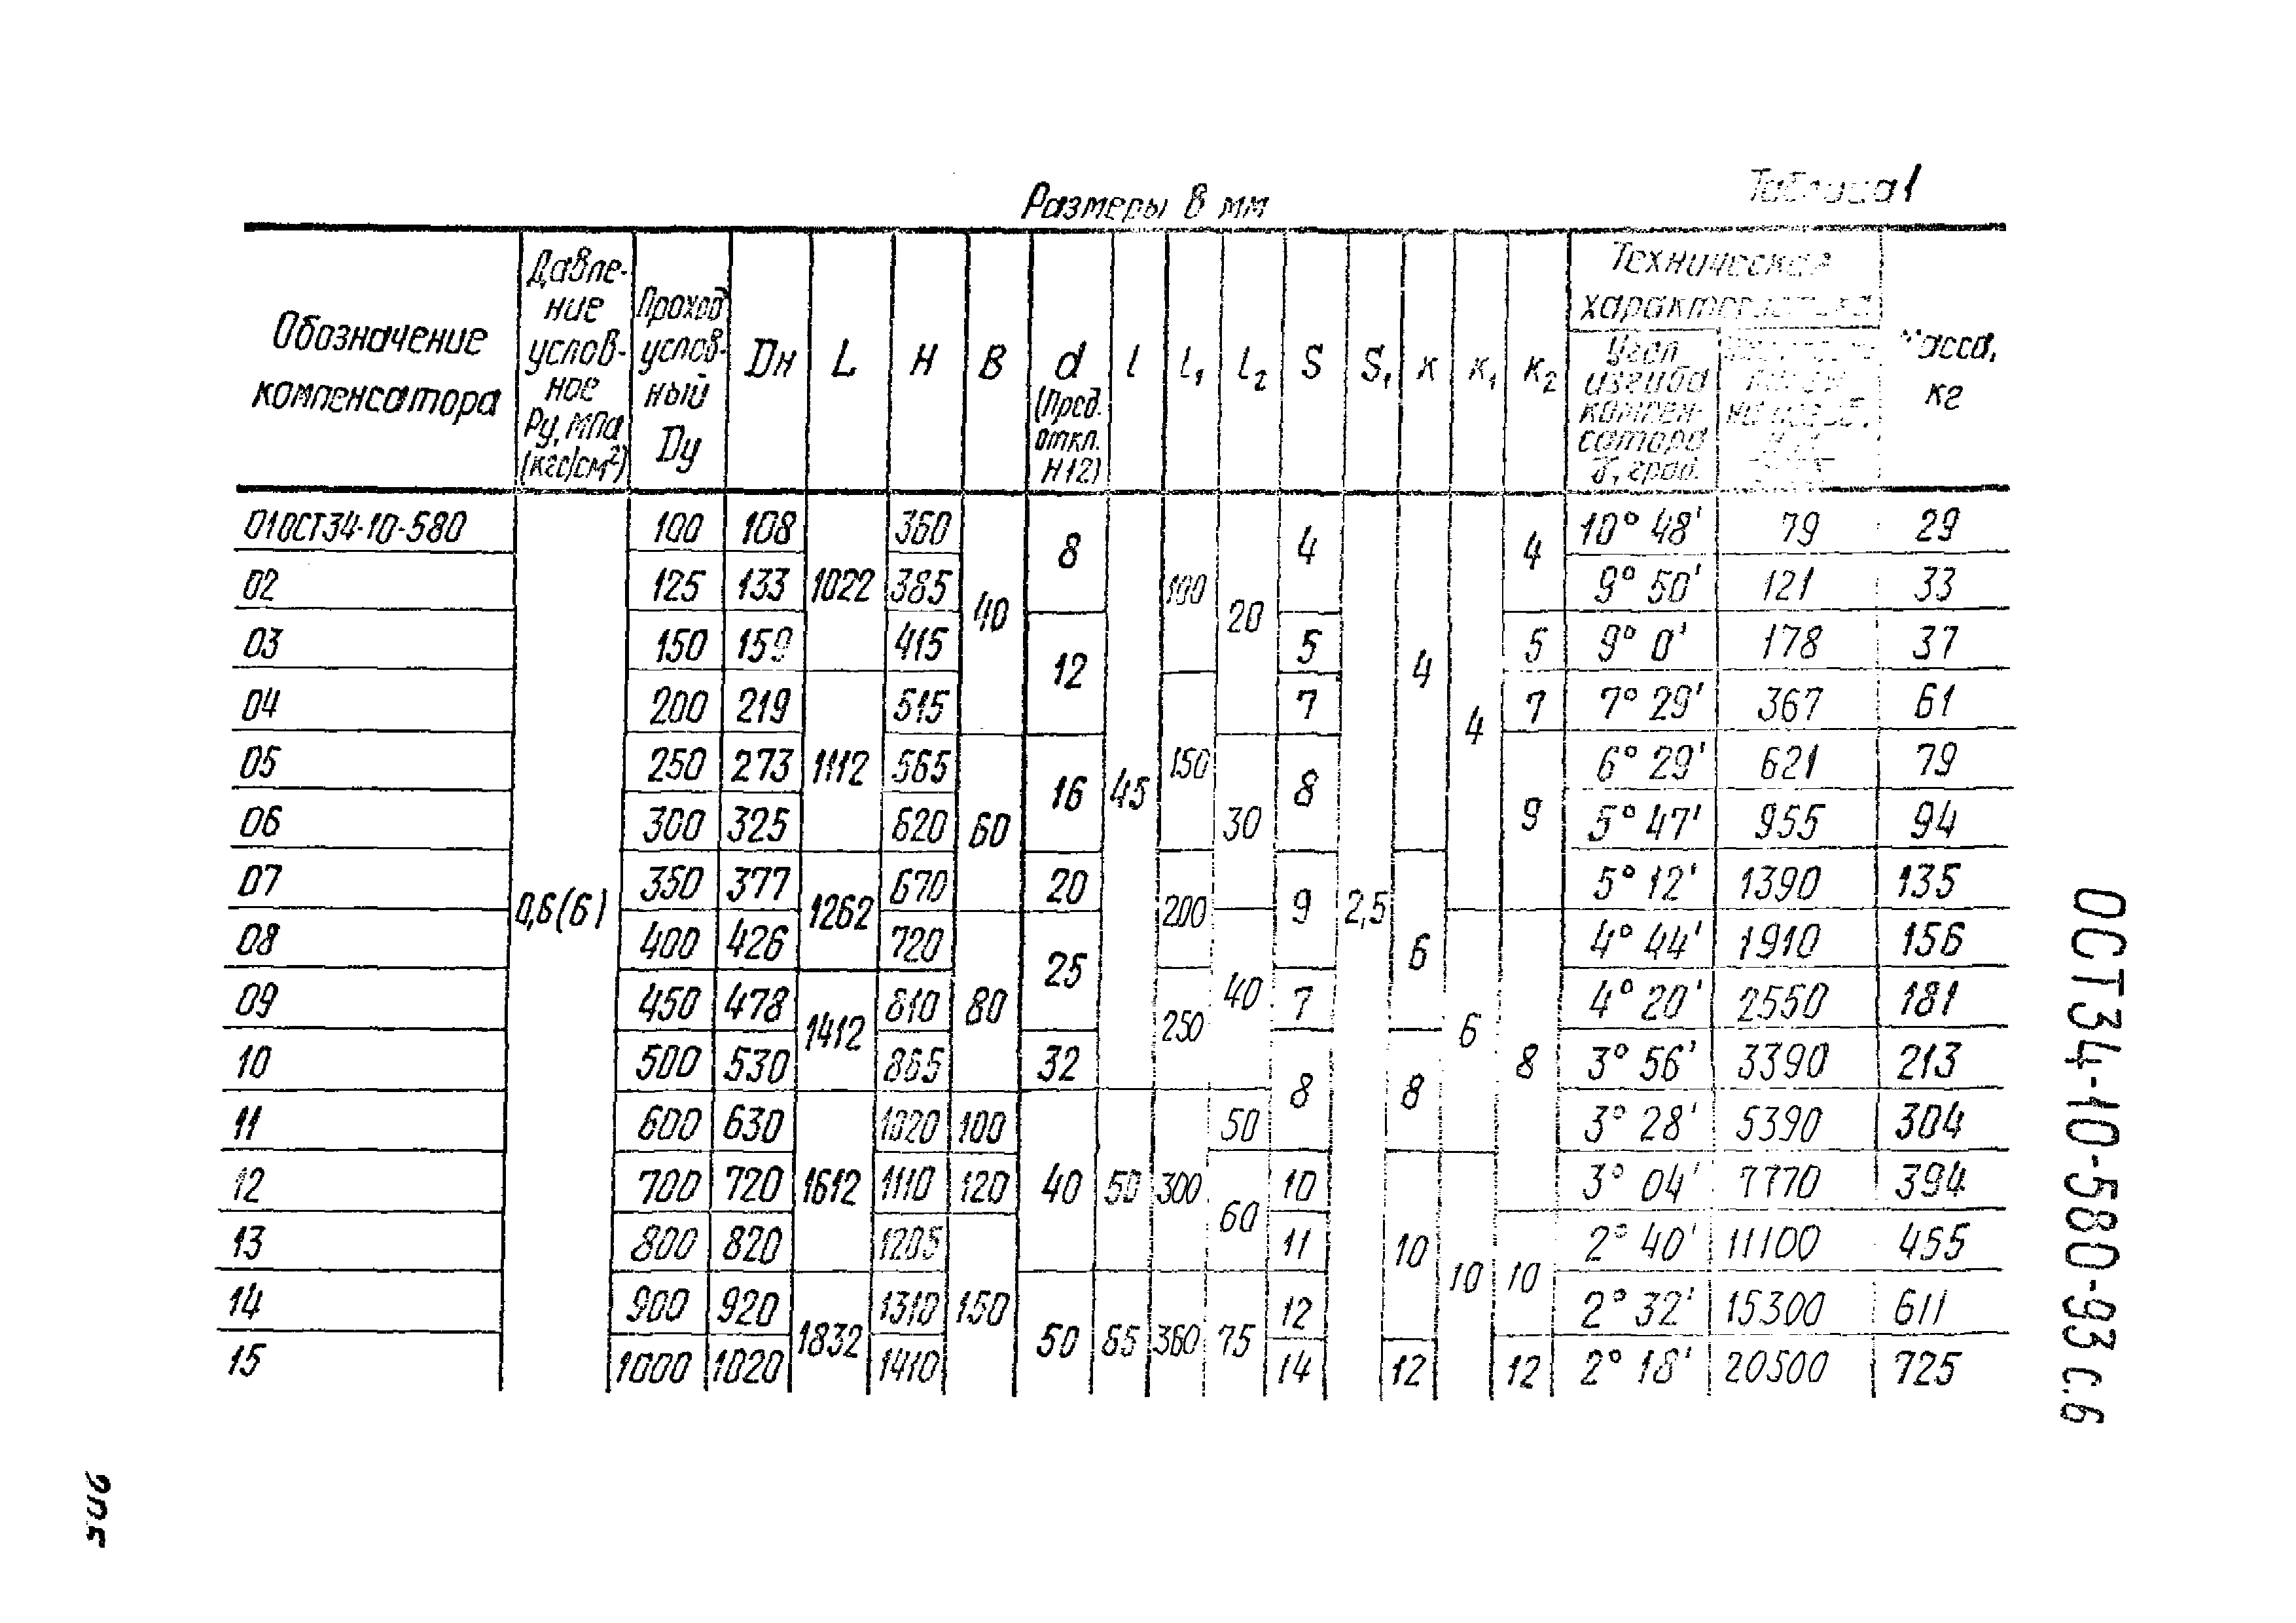 Таблица 1
Размеры в мм
Обозначение компенсатора
Давле-
ние
услов-
ное
Ру, МПа
(кгс/см²)
Проход
услов-
ный
Dу
Dн
L
H
B
d
(Пред.
откл.
H12)
l
l₁
l₂
S
S₁
к
к₁
к₂
Техническая
характеристика
Угол
изгиба
компен-
сатора
γ, град.
Масса,
кг
01 ОСТ34-10-580 0,6(6) 100 108 1022 360 40 8 45 100 20 4 2,5 4 4 4 10° 48' 79 29
02 125 133 385 9° 50' 121 33
03 150 159 415 12 5 5 9° 0' 178 37
04 200 219 1112 515 150 7 7 7° 29' 367 61
05 250 273 565 60 16 30 8 9 6° 29' 621 79
06 300 325 620 5° 47' 955 94
07 350 377 1262 670 20 200 9 6 5° 12' 1390 135
08 400 426 720 80 25 40 6 8 4° 44' 1910 156
09 450 478 1412 810 250 7 4° 20' 2550 181
10 500 530 865 32 8 8 3° 56' 3390 213
11 600 630 1612 1020 100 40 50 300 50 3° 28' 5390 304
12 700 720 1110 120 60 10 10 10 3° 04' 7770 394
13 800 820 1205 150 11 10 2° 40' 11100 455
14 900 920 1832 1310 50 65 360 75 12 2° 32' 15300 611
15 1000 1020 1410 14 12 12 2° 18' 20500 725
ОСТ34-10-580-93 с.6